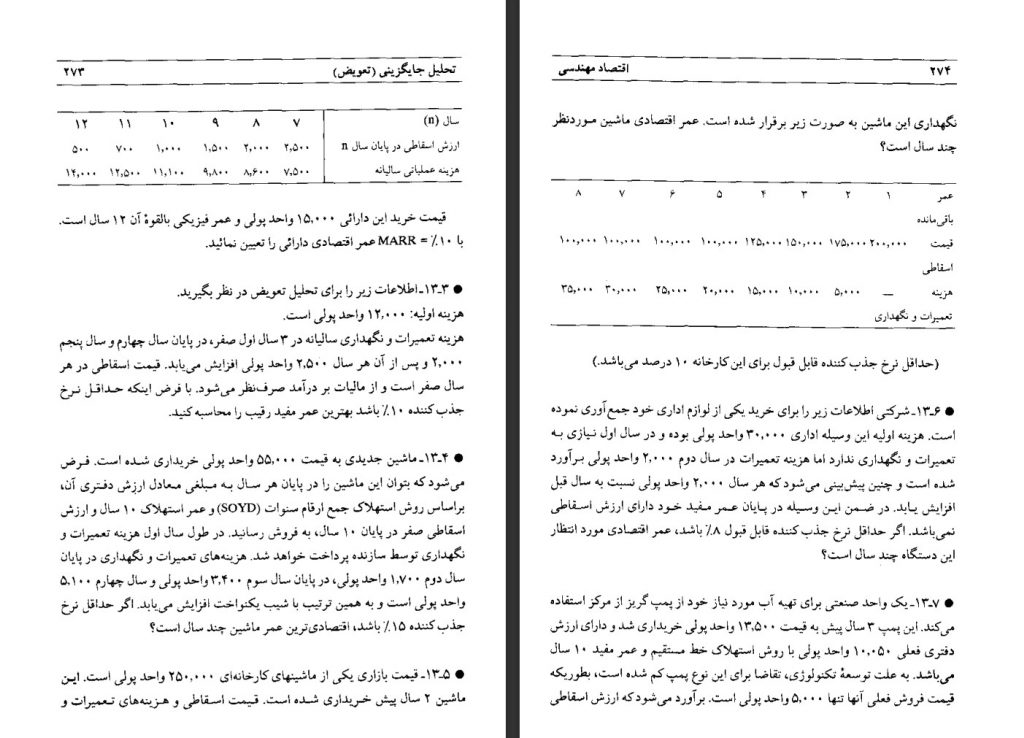 تحلیل جایگزینی (تعویض) ۲۷۳
سال (n) ۷ ۸ ۹ ۱۰ ۱۱ ۱۲
ارزش اسقاطی در پایان سال n ۲,۵۰۰ ۲,۰۰۰ ۱,۵۰۰ ۱,۰۰۰ ۷۰۰ ۵۰۰
هزینه عملیاتی سالیانه ۷,۵۰۰ ۸,۶۰۰ ۹,۸۰۰ ۱۱,۱۰۰ ۱۲,۵۰۰ ۱۴,۰۰۰
قیمت خرید این دارائی ۱۵,۰۰۰ واحد پولی و عمر فیزیکی بالقوهٔ آن ۱۲ سال است.
با ۱۰٪ = MARR عمر اقتصادی دارائی را تعیین نمائید.
● ۱۳ـ۳ـ اطلاعات زیر را برای تحلیل تعویض در نظر بگیرید.
هزینه اولیه: ۱۲,۰۰۰ واحد پولی است.
هزینه تعمیرات و نگهداری سالیانه در ۳ سال اول صفر، در پایان سال چهارم و سال پنجم
۲,۰۰۰ و پس از آن هر سال ۲,۵۰۰ واحد پولی افزایش می‌یابد. قیمت اسقاطی در هر
سال صفر است و از مالیات بر درآمد صرف‌نظر می‌شود. با فرض اینکه حداقل نرخ
جذب کننده ۱۰٪ باشد بهترین عمر مفید رقیب را محاسبه کنید.
● ۱۳ـ۴ـ ماشین جدیدی به قیمت ۵۵,۰۰۰ واحد پولی خریداری شده است. فرض
می‌شود که بتوان این ماشین را در پایان هر سال به مبلغی معادل ارزش دفتری آن،
براساس روش استهلاک جمع ارقام سنوات (SOYD) و عمر استهلاک ۱۰ سال و ارزش
اسقاطی صفر در پایان ۱۰ سال، به فروش رسانید. در طول سال اول هزینه تعمیرات و
نگهداری توسط سازنده پرداخت خواهد شد. هزینه‌های تعمیرات و نگهداری در پایان
سال دوم ۱,۷۰۰ واحد پولی، در پایان سال سوم ۳,۴۰۰ واحد پولی و سال چهارم ۵,۱۰۰
واحد پولی است و به همین ترتیب با شیب یکنواخت افزایش می‌یابد. اگر حداقل نرخ
جذب کننده ۱۵٪ باشد، اقتصادی‌ترین عمر ماشین چند سال است؟
● ۱۳ـ۵ـ قیمت بازاری یکی از ماشینهای کارخانه‌ای ۲۵۰,۰۰۰ واحد پولی است. این
ماشین ۲ سال پیش خریداری شده است. قیمت اسقاطی و هزینه‌های تعمیرات و
۲۷۴ اقتصاد مهندسی
نگهداری این ماشین به صورت زیر برقرار شده است. عمر اقتصادی ماشین موردنظر
چند سال است؟
عمر ۱ ۲ ۳ ۴ ۵ ۶ ۷ ۸
باقی‌مانده
قیمت ۲۰۰,۰۰۰ ۱۷۵,۰۰۰ ۱۵۰,۰۰۰ ۱۲۵,۰۰۰ ۱۰۰,۰۰۰ ۱۰۰,۰۰۰ ۱۰۰,۰۰۰ ۱۰۰,۰۰۰
اسقاطی
هزینه — ۵,۰۰۰ ۱۰,۰۰۰ ۱۵,۰۰۰ ۲۰,۰۰۰ ۲۵,۰۰۰ ۳۰,۰۰۰ ۳۵,۰۰۰
تعمیرات و نگهداری
(حداقل نرخ جذب کننده قابل قبول برای این کارخانه ۱۰ درصد می‌باشد.)
● ۱۳ـ۶ـ شرکتی اطلاعات زیر را برای خرید یکی از لوازم اداری خود جمع‌آوری نموده
است. هزینه اولیه این وسیله اداری ۳۰,۰۰۰ واحد پولی بوده و در سال اول نیازی به
تعمیرات و نگهداری ندارد اما هزینه تعمیرات در سال دوم ۲,۰۰۰ واحد پولی برآورد
شده است و چنین پیش‌بینی می‌شود که هر سال ۲,۰۰۰ واحد پولی نسبت به سال قبل
افزایش یابد. در ضمن این وسیله در پایان عمر مفید خود دارای ارزش اسقاطی
نمی‌باشد. اگر حداقل نرخ جذب کننده قابل قبول ۸٪ باشد، عمر اقتصادی مورد انتظار
این دستگاه چند سال است؟
● ۱۳ـ۷ـ یک واحد صنعتی برای تهیه آب مورد نیاز خود از پمپ گریز از مرکز استفاده
می‌کند. این پمپ ۳ سال پیش به قیمت ۱۳,۵۰۰ واحد پولی خریداری شد و دارای ارزش
دفتری فعلی ۱۰,۰۵۰ واحد پولی با روش استهلاک خط مستقیم و عمر مفید ۱۰ سال
می‌باشد. به علت توسعهٔ تکنولوژی، تقاضا برای این نوع پمپ کم شده است، بطوریکه
قیمت فروش فعلی آنها تنها ۵,۰۰۰ واحد پولی است. برآورد می‌شود که ارزش اسقاطی